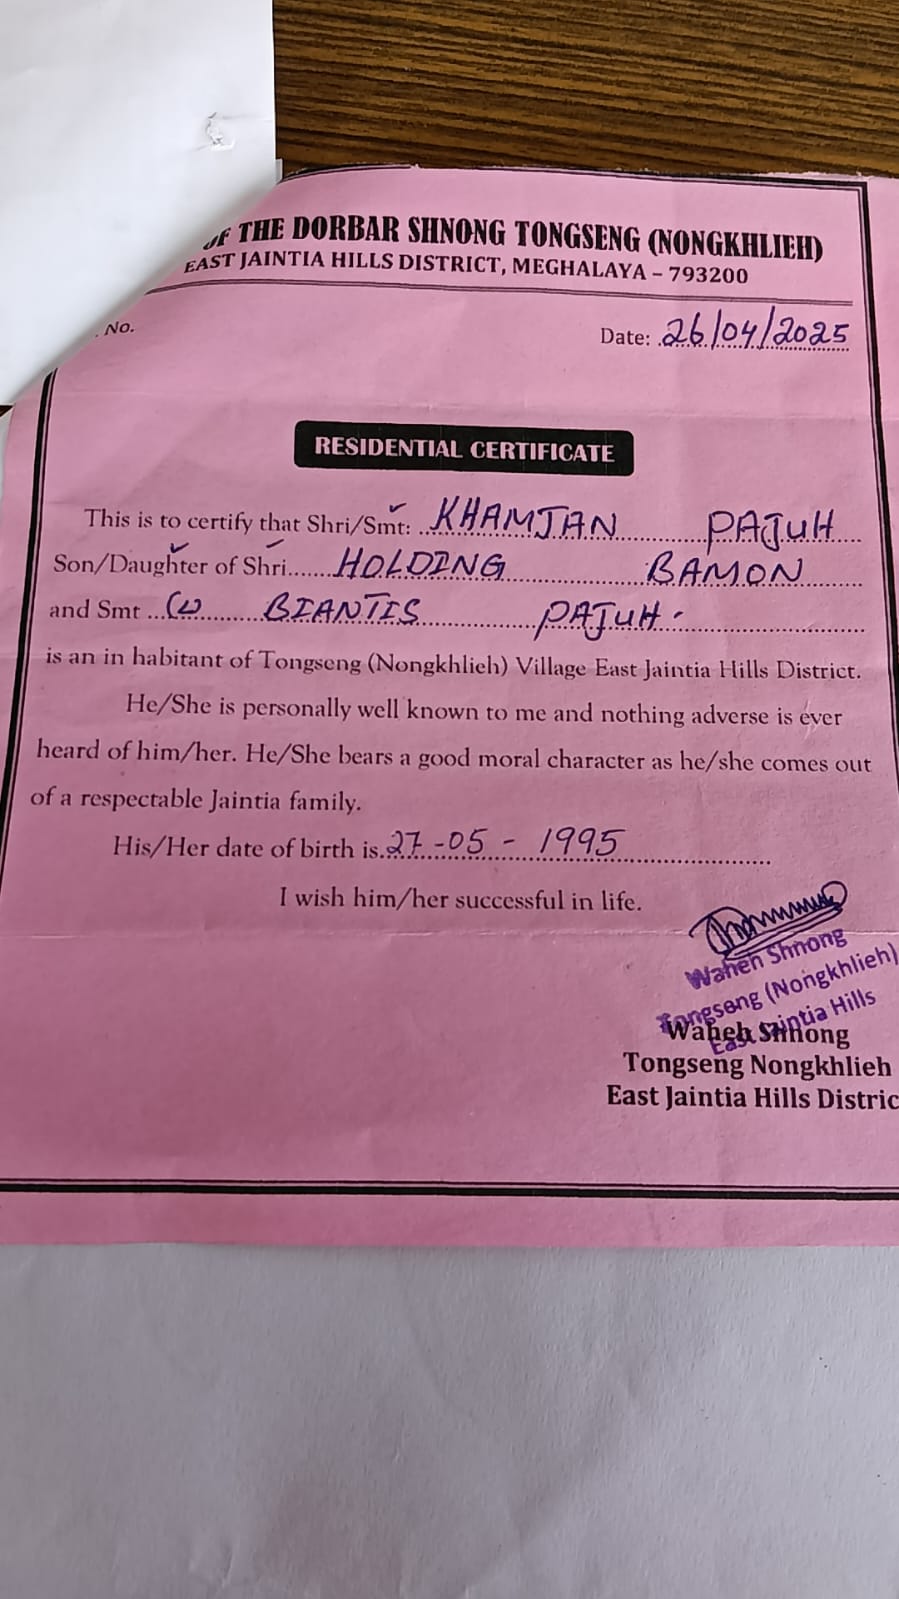 OF THE DORBAR SHNONG TONGSENG (NONGKHLIEH)
EAST JAINTIA HILLS DISTRICT, MEGHALAYA – 793200
. No.
Date: 26/04/2025
RESIDENTIAL CERTIFICATE
This is to certify that Shri/Smt: KHAMJAN PAJUH
Son/Daughter of Shri HOLDING BAMON
and Smt (L) BIANTIS PAJUH.
is an in habitant of Tongseng (Nongkhlieh) Village East Jaintia Hills District.
He/She is personally well known to me and nothing adverse is ever
heard of him/her. He/She bears a good moral character as he/she comes out
of a respectable Jaintia family.
His/Her date of birth is 27-05-1995
I wish him/her successful in life.
Waheh Shnong
Tongseng (Nongkhlieh)
East Jaintia Hills
Waheh Shnong
Tongseng Nongkhlieh
East Jaintia Hills Distric